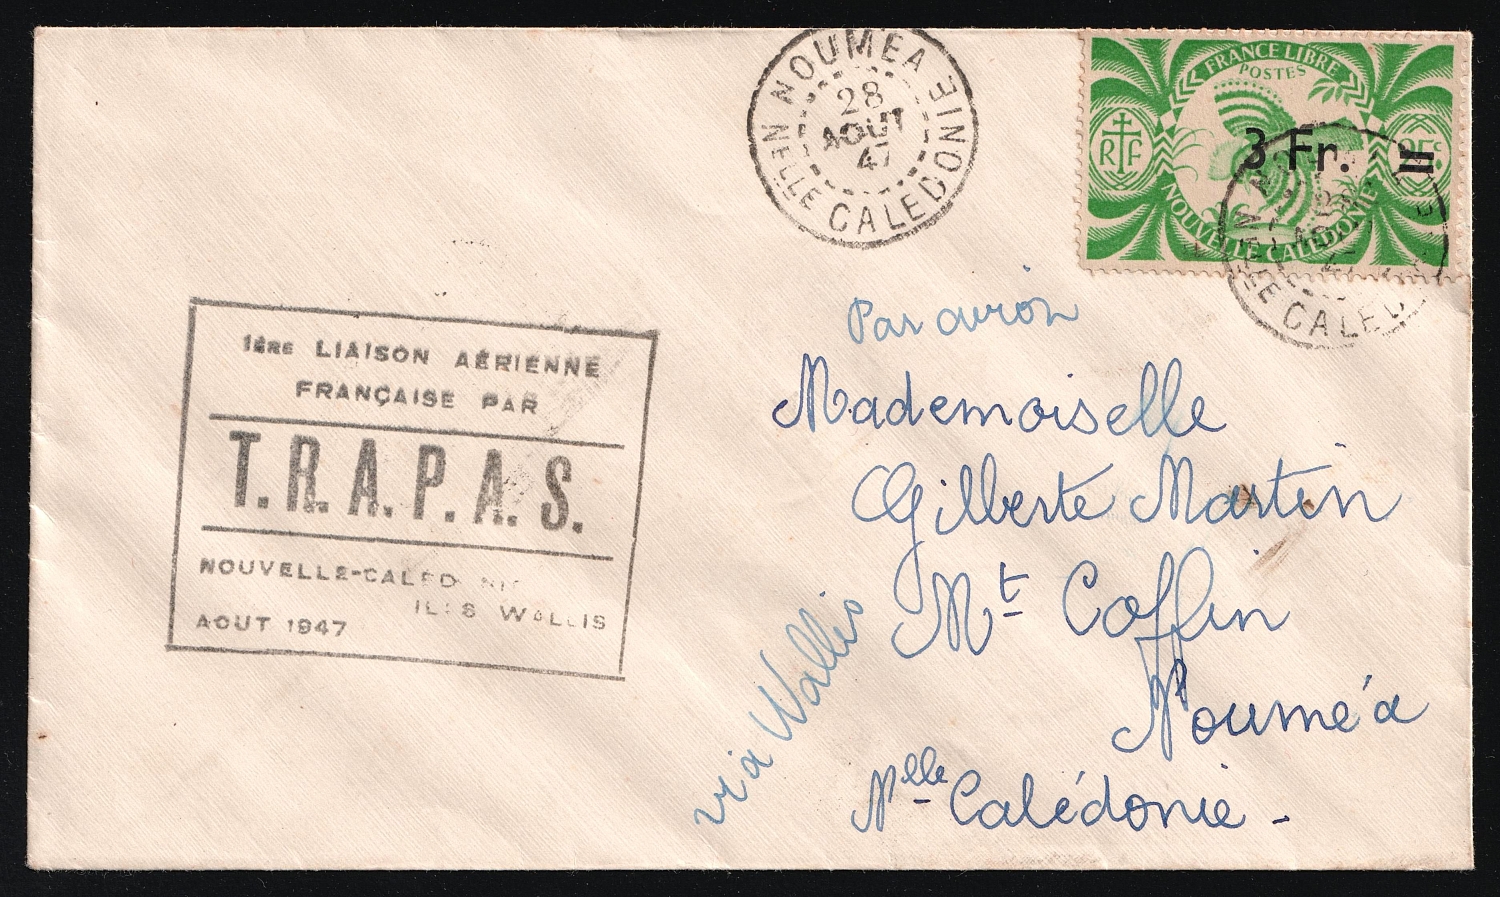 NOUMEA
28
AOUT
47
NELLE CALEDONIE
FRANCE LIBRE
POSTES
RF
3 Fr.
25c
NOUVELLE CALÉDONIE
LLE CALED
Par avion
Mademoiselle
Gilberte Martin
Mt Coffin
Nouméa
Nlle Calédonie -
via Wallis
1ÈRE LIAISON AÉRIENNE
FRANÇAISE PAR
T.R.A.P.A.S.
NOUVELLE-CALEDONIE
ILES WALLIS
AOUT 1947